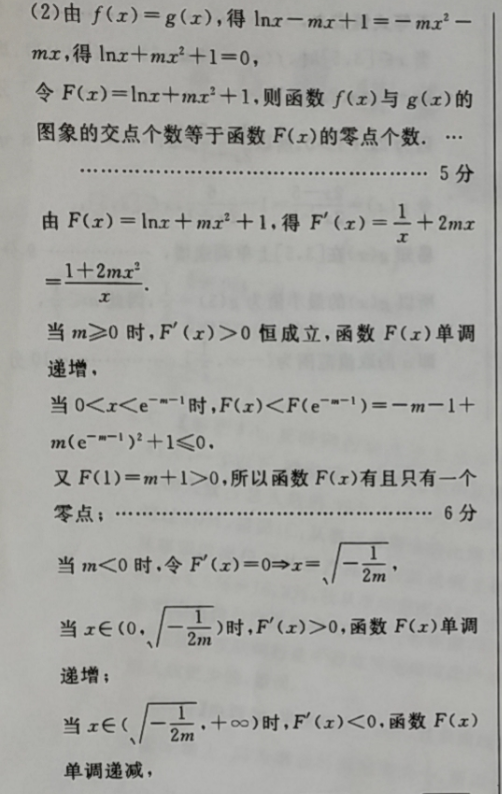 (2)由 f(x)=g(x),得 lnx-mx+1=-mx²-
mx,得 lnx+mx²+1=0,
令 F(x)=lnx+mx²+1,则函数 f(x)与 g(x)的
图象的交点个数等于函数 F(x)的零点个数. …
………………………………………… 5 分
由 F(x)=lnx+mx²+1,得 F′(x)=1/x+2mx
=(1+2mx²)/x.
当 m≥0 时,F′(x)>0 恒成立,函数 F(x)单调
递增,
当 0<x<e^(-m-1)时,F(x)<F(e^(-m-1))=-m-1+
m(e^(-m-1))²+1≤0,
又 F(1)=m+1>0,所以函数 F(x)有且只有一个
零点; ……………………………………… 6 分
当 m<0 时,令 F′(x)=0⇒x=√(-1/2m),
当 x∈(0,√(-1/2m))时,F′(x)>0,函数 F(x)单调
递增;
当 x∈(√(-1/2m),+∞)时,F′(x)<0,函数 F(x)
单调递减,